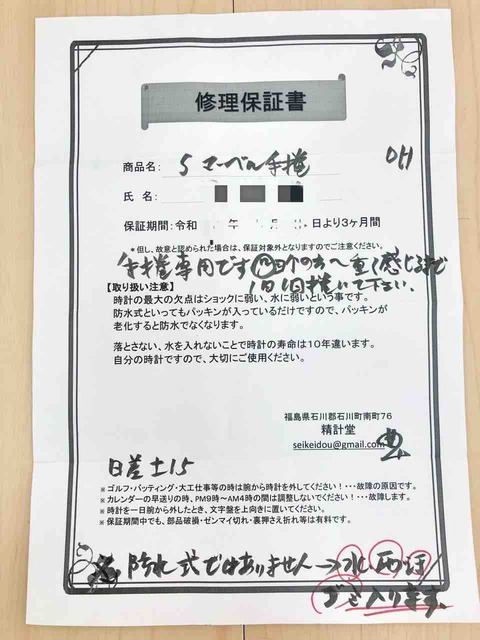 修理保証書
商品名： S マーベル手捲 OH
氏 名：
保証期間：令和 年 日より3ヶ月間
＊但し、故意と認められた場合は、保証対象外となりますのでご注意ください。
手捲専用です の方へ重く感じるまで
1日1回捲いて下さい.
【取り扱い注意】
時計の最大の欠点はショックに弱い、水に弱いという事です。
防水式といってもパッキンが入っているだけですので、パッキンが
老化すると防水でなくなります。
落とさない、水を入れないことで時計の寿命は10年違います。
自分の時計ですので、大切にご使用ください。
福島県石川郡石川町南町76
精計堂
seikeidou@gmail.com
日差±15
※ゴルフ・バッティング・大工仕事等の時は腕から時計を外してください！・・・故障の原因です。
※カレンダーの早送りの時、PM9時～AM4時の間は調整しないでください！・・・故障します。
※時計を一日腕から外したとき、文字盤を上向きに置いてください。
※保証期間中でも、部品破損・ゼンマイ切れ・裏押さえ折れ等は有料です。
防水式ではありません→水、雨、汗
ゴミ入ります.